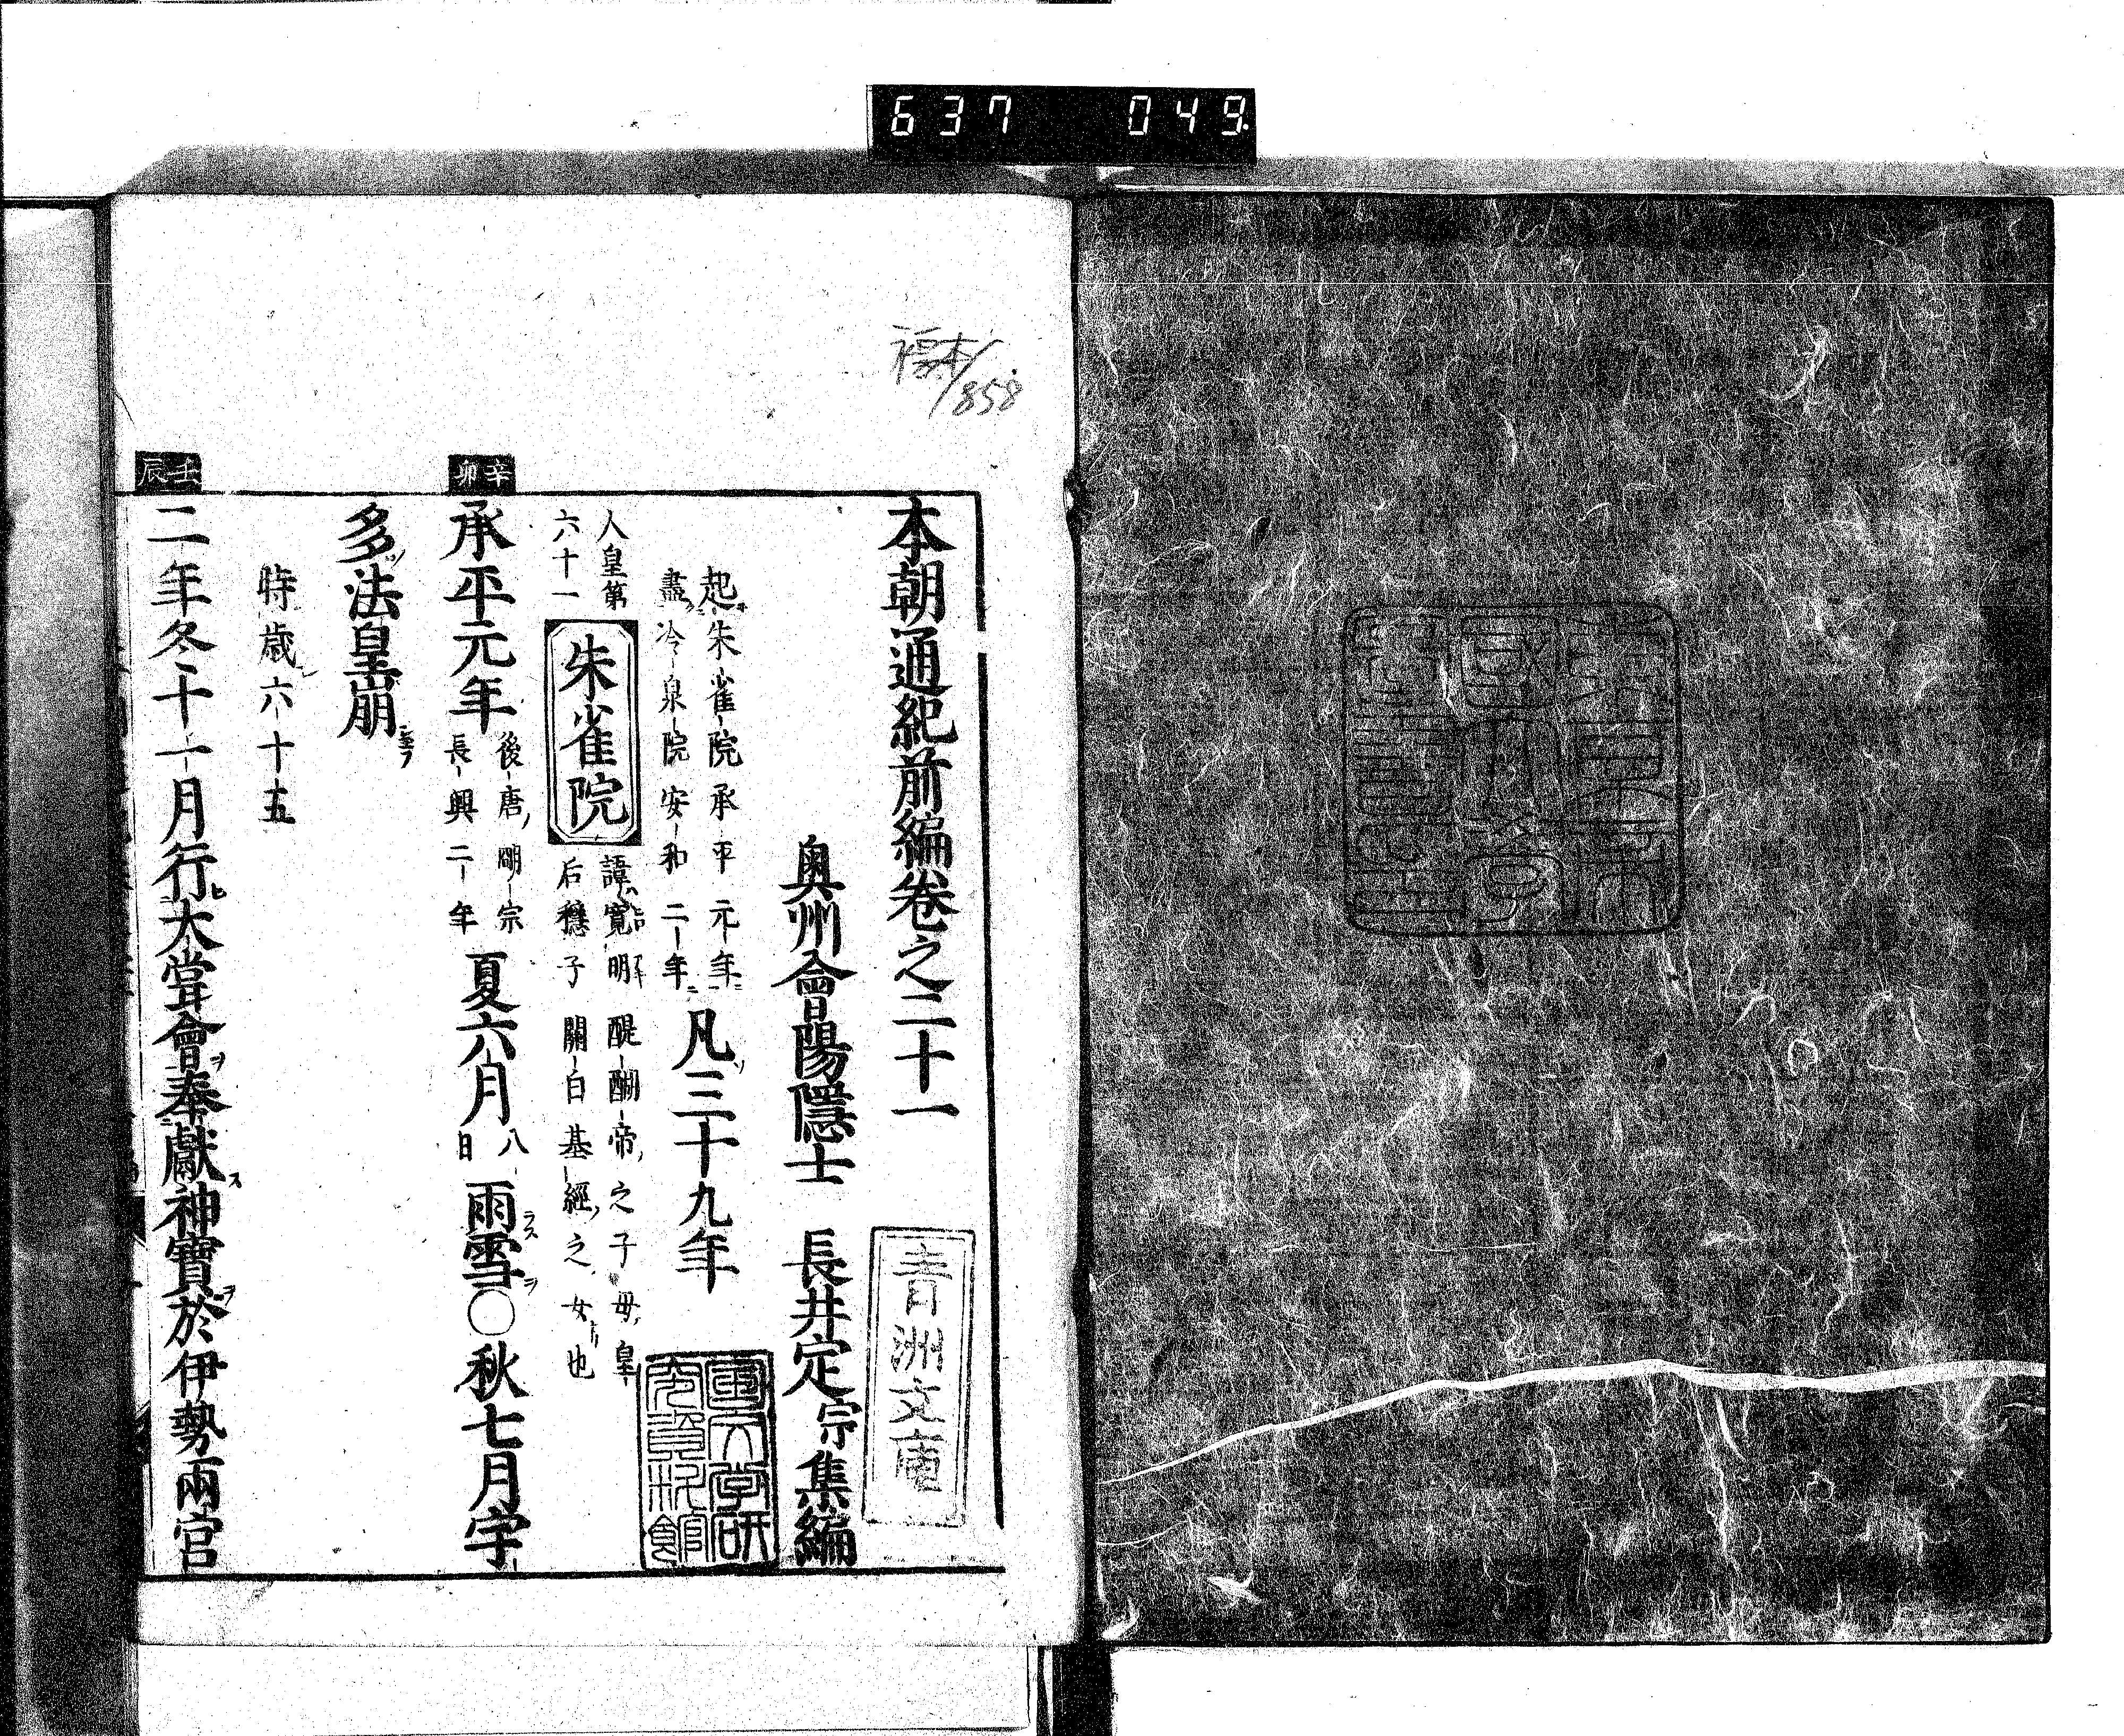 637 049
858
本朝通紀前編卷之二十一
奥州會陽隱士 長井定宗集編
起朱雀院承平元年
盡冷泉院安和二年
凡三十九年
人皇第
六十一
朱雀院
諱寛明醍醐帝之子母皇
后穩子關白基經之女也
辛卯
承平元年
後唐明宗
長興二年
夏六月
八日
雨雪〇秋七月宇
多法皇崩
時歳六十五
壬辰
二年冬十一月行大甞會奉獻神寶於伊勢兩宮
青洲文庫
国文学研
究資料館